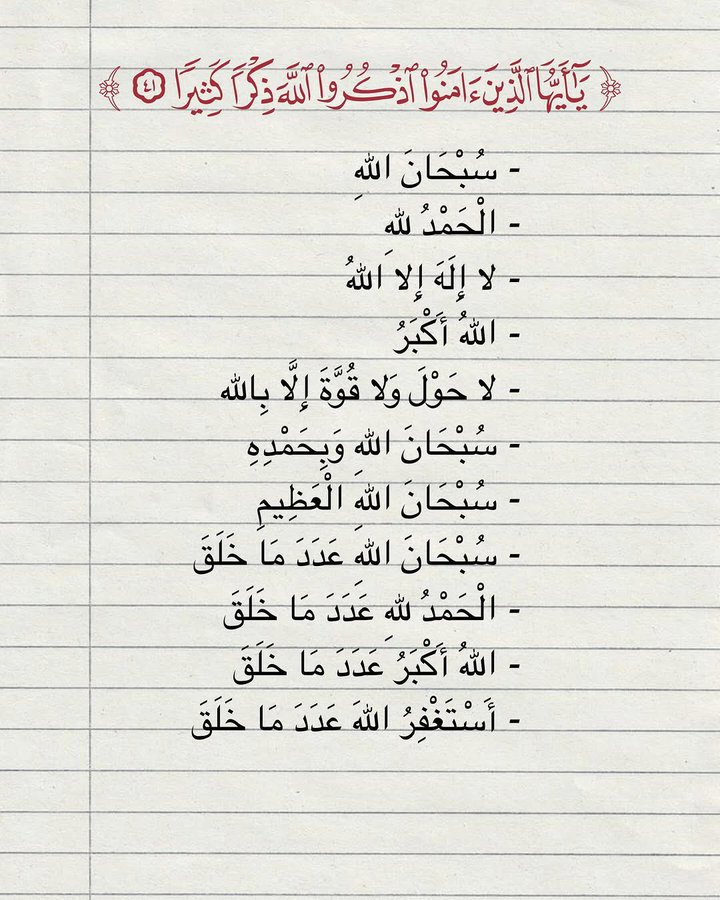 ﴿يَٰٓأَيُّهَا ٱلَّذِينَ ءَامَنُوا۟ ٱذْكُرُوا۟ ٱللَّهَ ذِكْرًا كَثِيرًا ٤١﴾
- سُبْحَانَ اللهِ
- الْحَمْدُ للهِ
- لا إِلَهَ إِلا اللهُ
- اللهُ أَكْبَرُ
- لا حَوْلَ وَلا قُوَّةَ إِلَّا بِالله
- سُبْحَانَ اللهِ وَبِحَمْدِهِ
- سُبْحَانَ اللهِ الْعَظِيمِ
- سُبْحَانَ اللهِ عَدَدَ مَا خَلَقَ
- الْحَمْدُ للهِ عَدَدَ مَا خَلَقَ
- اللهُ أَكْبَرُ عَدَدَ مَا خَلَقَ
- أَسْتَغْفِرُ اللهَ عَدَدَ مَا خَلَقَ